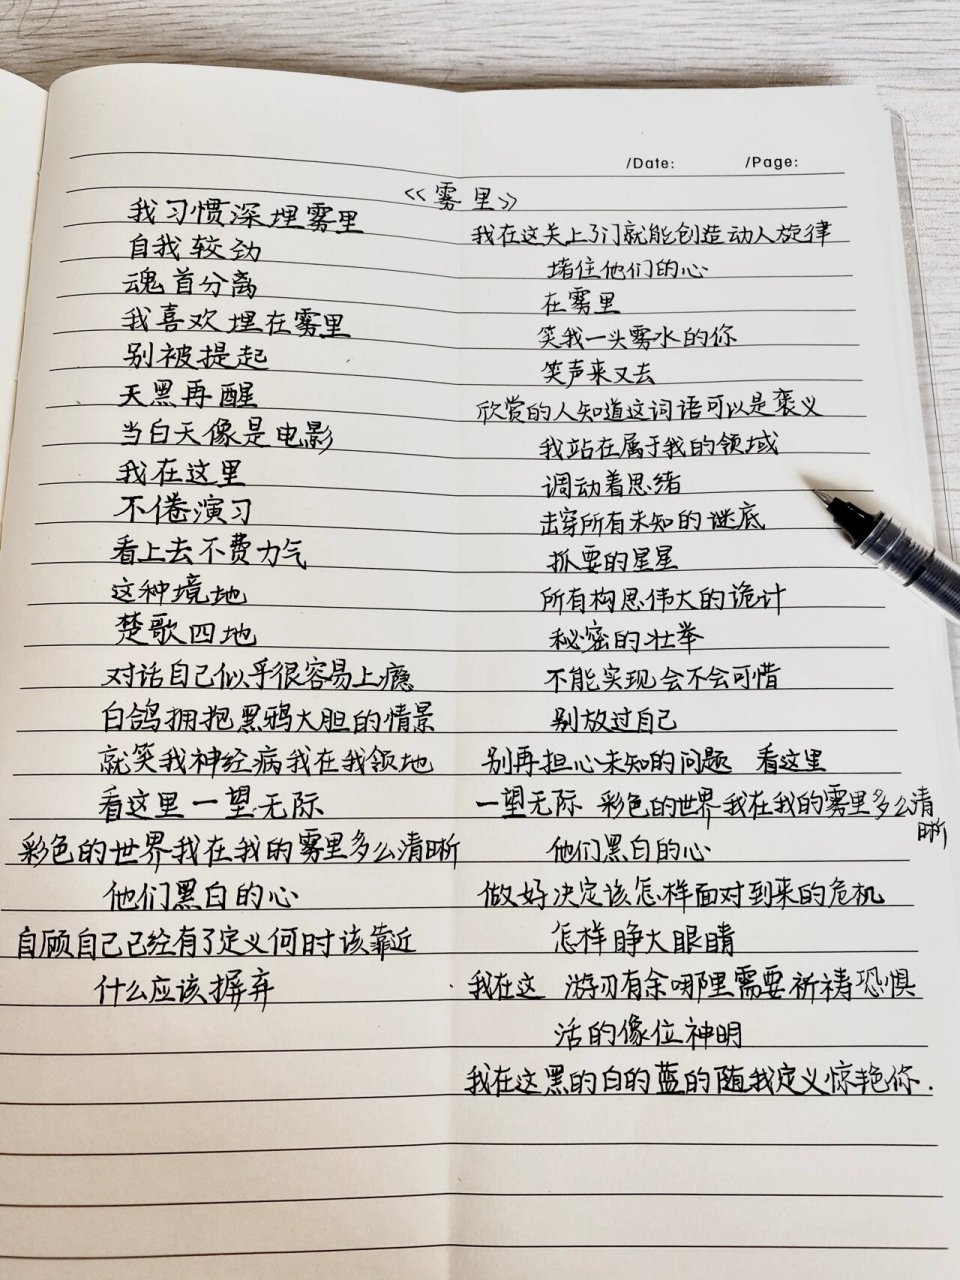 /Date: /Page:
《雾里》
我习惯深埋雾里
自我较劲
魂首分离
我喜欢埋在雾里
别被提起
天黑再醒
当白天像是电影
我在这里
不倦演习
看上去不费力气
这种境地
楚歌四地
对话自己似乎很容易上瘾
白鸽拥抱黑鸦大胆的情景
就笑我神经病我在我领地
看这里一望无际
彩色的世界我在我的雾里多么清晰
他们黑白的心
自顾自己已经有了定义何时该靠近
什么应该摒弃
我在这关上了门就能创造动人旋律
堵住他们的心
在雾里
笑我一头雾水的你
笑声来又去
欣赏的人知道这词语可以是褒义
我站在属于我的领域
调动着思绪
击穿所有未知的谜底
抓耍的星星
所有构思伟大的诡计
秘密的壮举
不能实现会不会可惜
别放过自己
别再担心未知的问题 看这里
一望无际 彩色的世界我在我的雾里多么清
晰
他们黑白的心
做好决定该怎样面对到来的危机
怎样睁大眼睛
我在这 游刃有余哪里需要祈祷恐惧
活的像位神明
我在这黑的白的蓝的随我定义惊艳你.